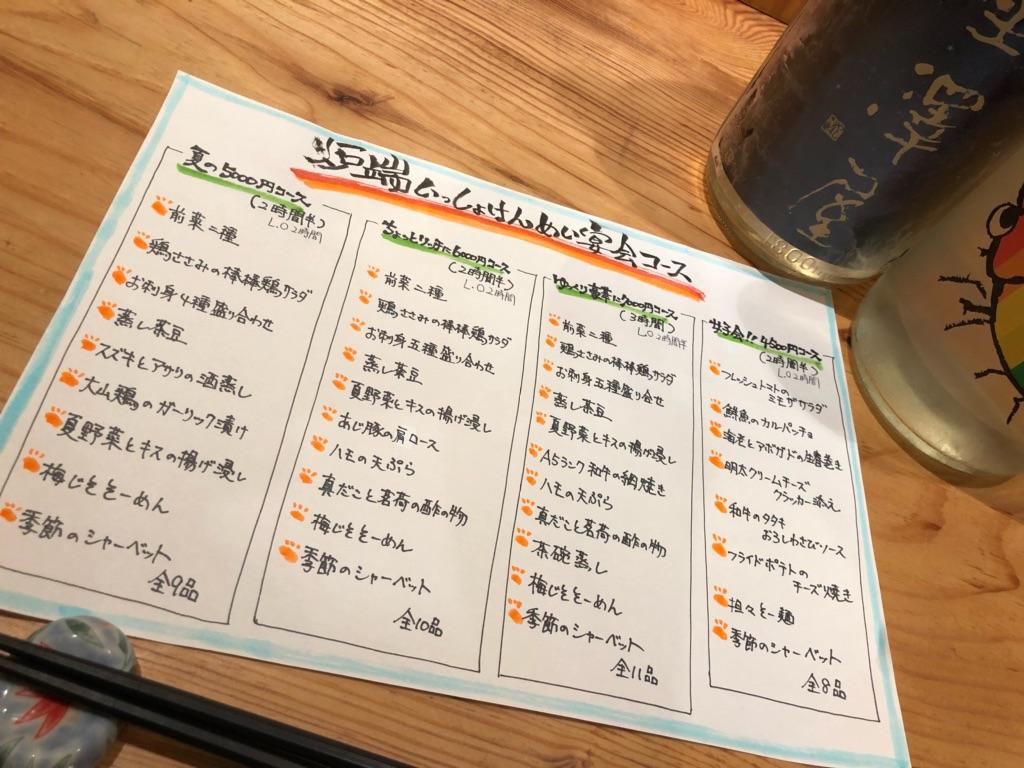 端いっしょけんめい宴会コース
夏の5000円コース
(2時間半)
L.O 2時間
前菜二種
鶏ささみの棒棒鶏サラダ
お刺身4種盛り合わせ
蒸し茶豆
スズキとアサリの酒蒸し
大山鶏のガーリック漬け
夏野菜とキスの揚げ浸し
梅じそそーめん
季節のシャーベット
全9品
ちょっとリッチに6000円コース
(2時間半)
L.O 2時間
前菜二種
鶏ささみの棒棒鶏サラダ
お刺身五種盛り合わせ
蒸し茶豆
夏野菜とキスの揚げ浸し
あじ豚の肩ロース
ハモの天ぷら
真だこと茗荷の酢の物
梅じそそーめん
季節のシャーベット
全10品
ゆっくり豪華に7000円コース
(3時間)
L.O 2時間半
前菜二種
鶏ささみの棒棒鶏サラダ
お刺身五種盛り合せ
蒸し茶豆
夏野菜とキスの揚げ浸し
A5ランク和牛の網焼き
ハモの天ぷら
真だこと茗荷の酢の物
茶碗蒸し
梅じそそーめん
季節のシャーベット
全11品
女子会!! 4500円コース
(2時間半)
L.O 2時間
フレッシュトマトの
ミモザサラダ
鮮魚のカルパッチョ
海老とアボガドの生春巻き
明太クリームチーズ
クラッカー添え
和牛のタタキ
おろしわさびソース
フライドポテトの
チーズ焼き
担々そー麺
季節のシャーベット
全8品